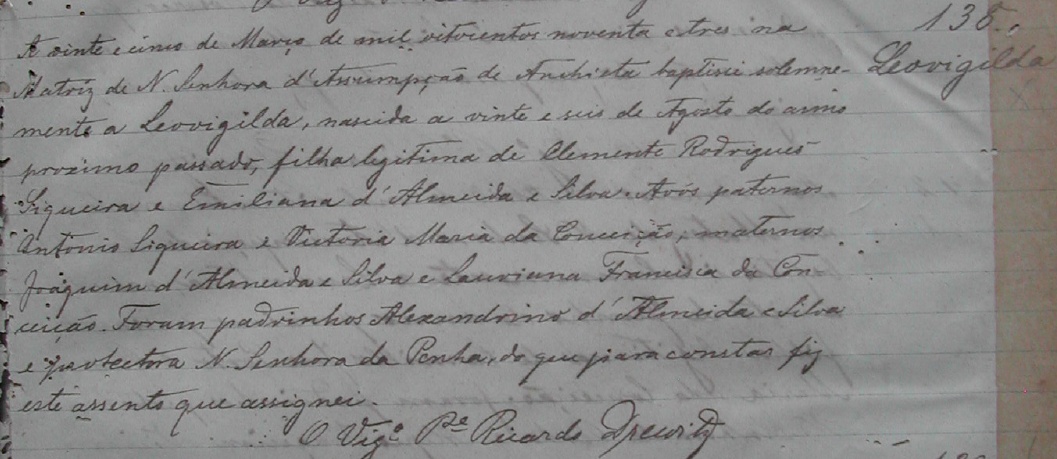 135.
Leovigilda
A vinte e cinco de Março de mil oitocentos noventa e tres na
Matriz de N. Senhora d'Assumpção de Anchieta baptisei solemne-
mente a Leovigilda, nascida a vinte e seis de Agosto do anno
proximo passado, filha legitima de Clemente Rodrigues
Siqueira e Emiliana d'Almeida e Silva. Avós paternos
Antonio Siqueira e Victoria Maria da Conceição, maternos
Joaquim d'Almeida e Silva e Lauriana Francisca da Con-
ceição. Foram padrinhos Alexandrino d'Almeida e Silva
e protectora N. Senhora da Penha, do que para constar fiz
este assento que assignei.
O Vigº Pe Ricardo